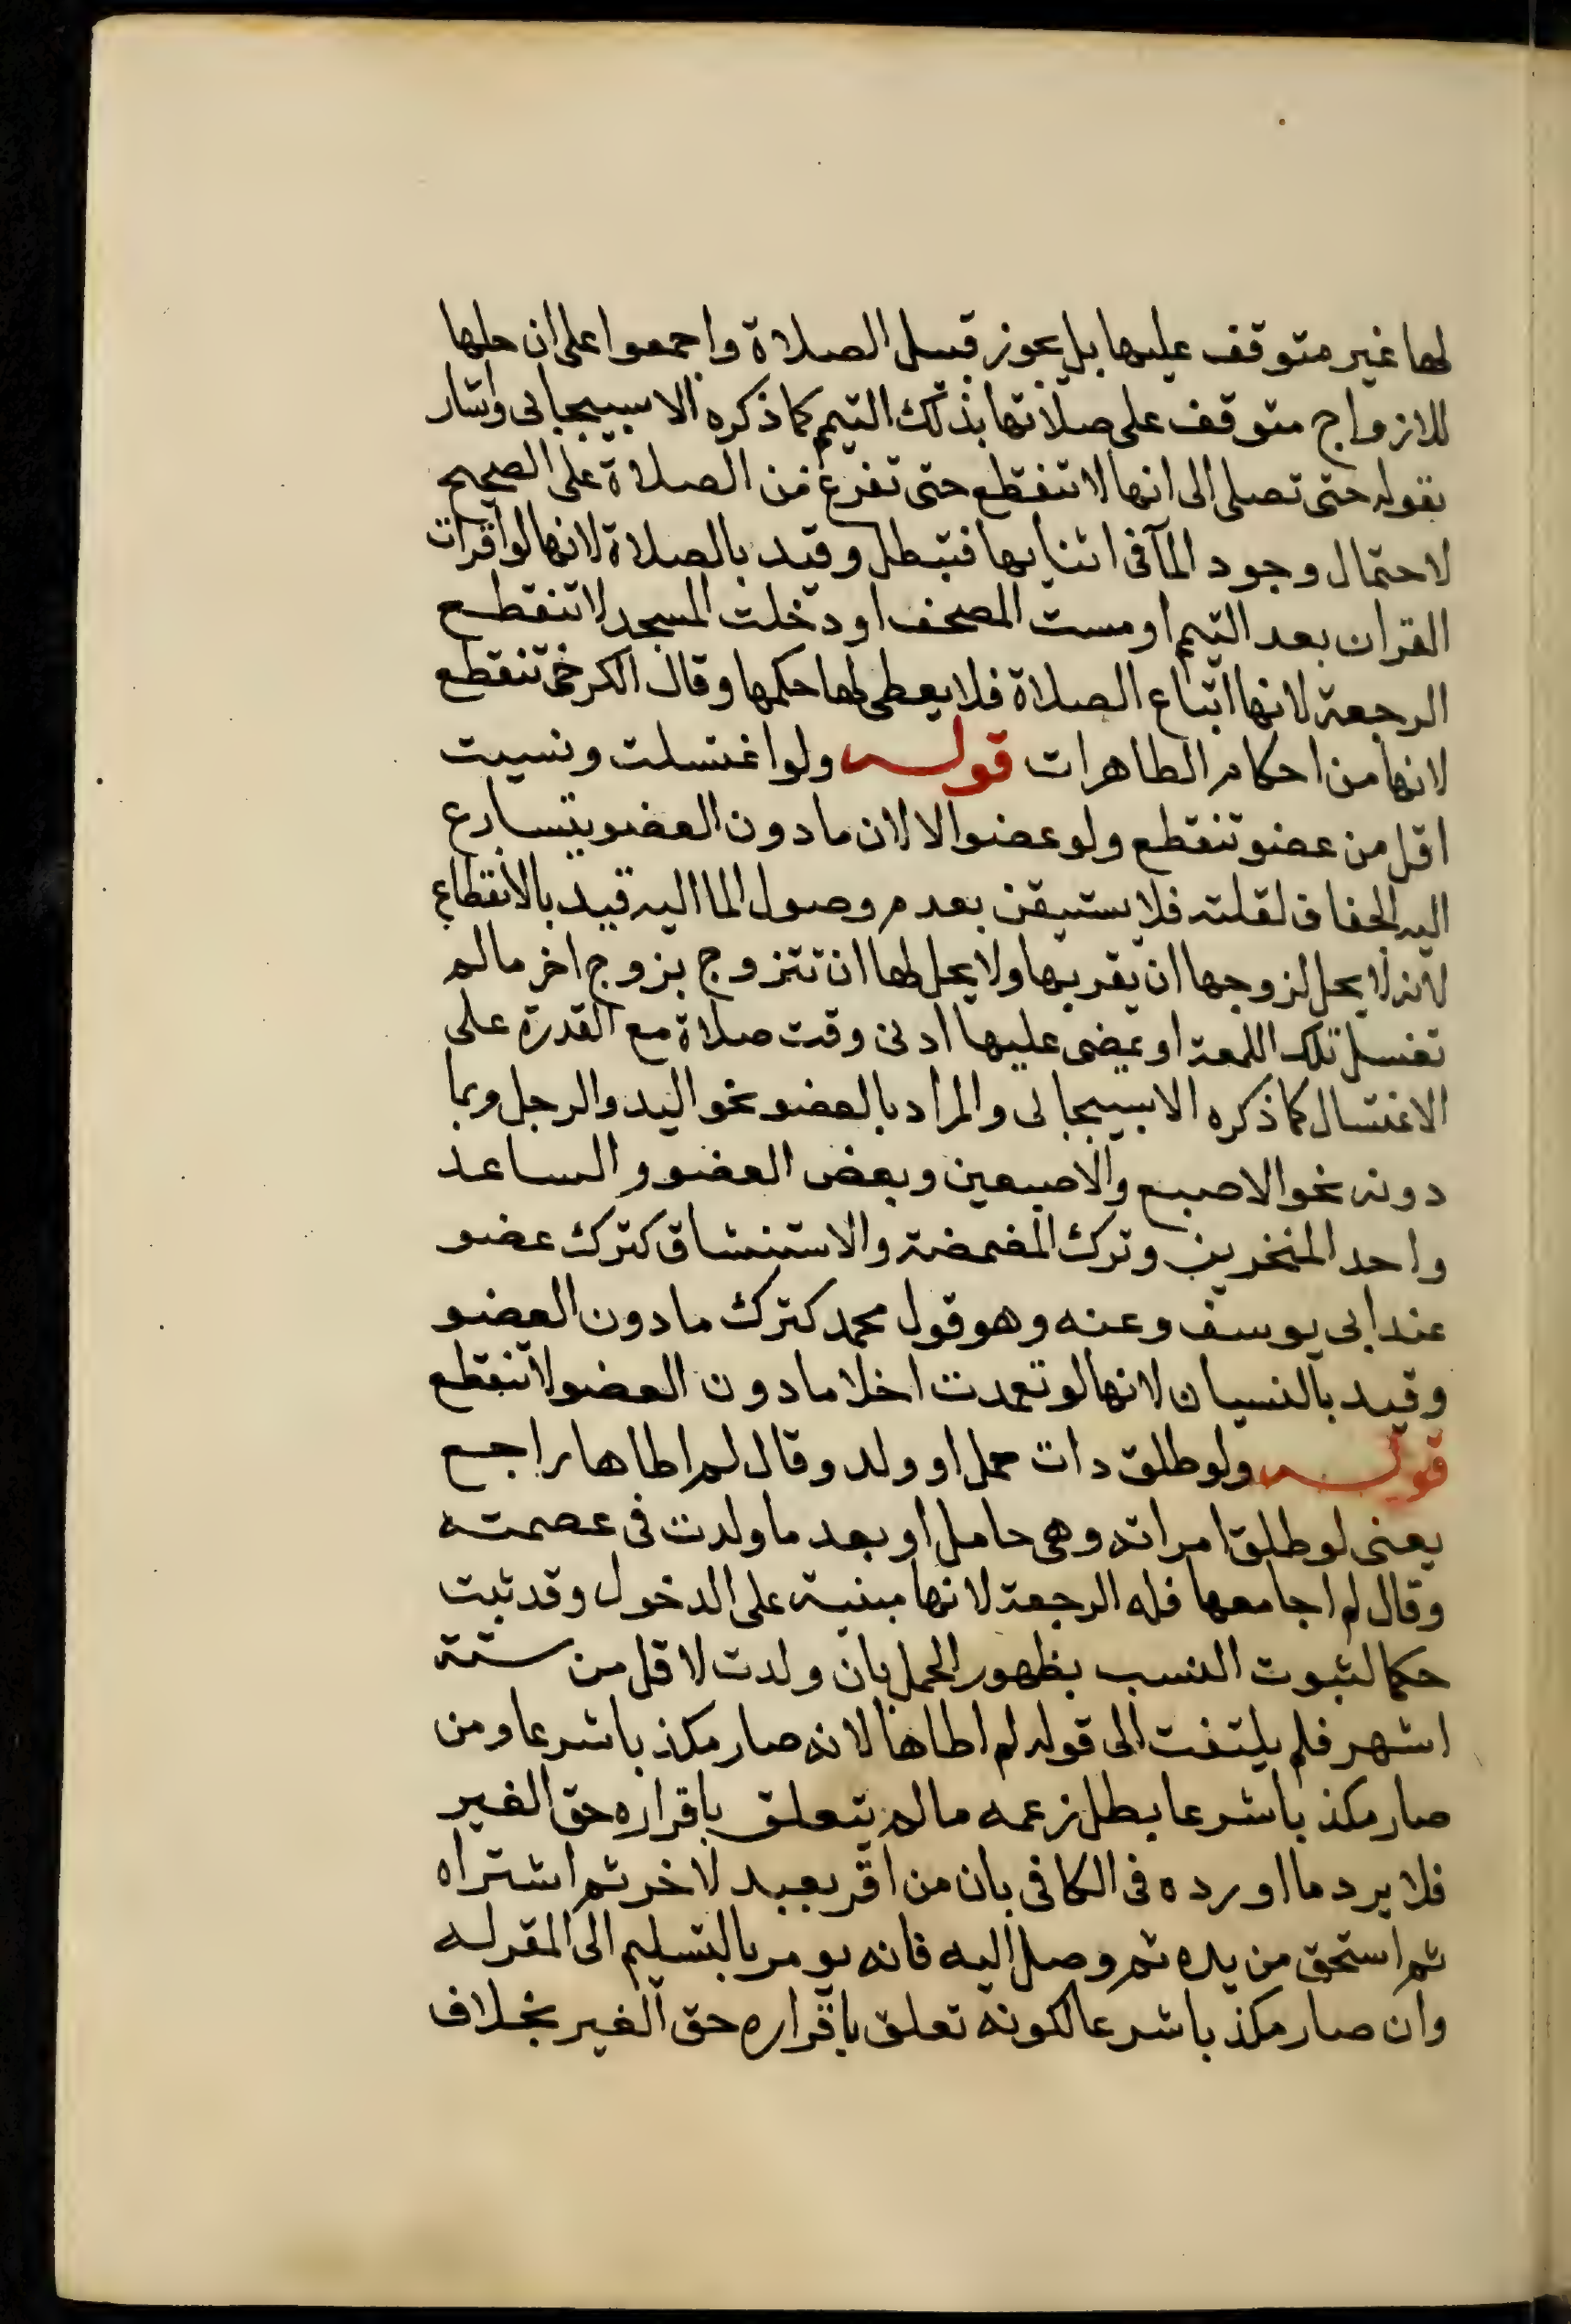 لها غير متوقف عليها بل يجوز قبل الصلاة واجمعوا على ان حلها
للازواج متوقف على صلاتها بذلك التيمم كما ذكره الاسبيجابى واشار
بقوله حتى تصلى الى انها لا تنقطع حتى تفرغ من الصلاة على الصحيح
لاحتمال وجود المآ فى اثنايها فتبطل وقيد بالصلاة لانها لو اقرات
القران بعد التيمم او مست المصحف او دخلت المسجد لا تنقطع
الرجعة لانها اتباع الصلاة فلا يعطى لها حكمها وقال الكرخى تنقطع
لانها من احكام الطاهرات قوله ولو اغتسلت ونسيت
اقل من عضو تنقطع ولو عضوا لا لان ما دون العضو يتسارع
اليه الجفاف لقلته فلا يستيقن بعدم وصول الما اليه قيد بالانقطاع
لانه لا يحل لزوجها ان يقربها ولا يحل لها ان تتزوج بزوج اخر ما لم
تغسل تلك اللمعة او يمضى عليها ادنى وقت صلاة مع القدرة على
الاغتسال كما ذكره الاسبيجابى والمراد بالعضو نحو اليد والرجل وبما
دونه نحو الاصبع والاصبعين وبعض العضو والساعد
واحد المنخرين وترك المضمضة والاستنشاق كترك عضو
عند ابى يوسف وعنه وهو قول محمد كترك ما دون العضو
وقيد بالنسيان لانها لو تعمدت اخلا ما دون العضو لا تنقطع
قوله ولو طلق ذات حمل او ولد وقال لم اطاها راجع
يعنى لو طلق امراته وهى حامل او بعد ما ولدت فى عصمته
وقال لم اجامعها فله الرجعة لانها مبنية على الدخول وقد ثبت
حكما لثبوت النسب بظهور الحمل بان ولدت لاقل من ستة
اشهر فلم يلتفت الى قوله لم اطاها لانه صار مكذبا شرعا ومن
صار مكذبا شرعا بطل زعمه ما لم يتعلق باقراره حق الغير
فلا يرد ما اورده فى الكافى بان من اقر بعبد لاخر ثم اشتراه
ثم استحق من يده ثم وصل اليه فانه يومر بالتسليم الى المقر له
وان صار مكذبا شرعا لكونه تعلق باقراره حق الغير بخلاف